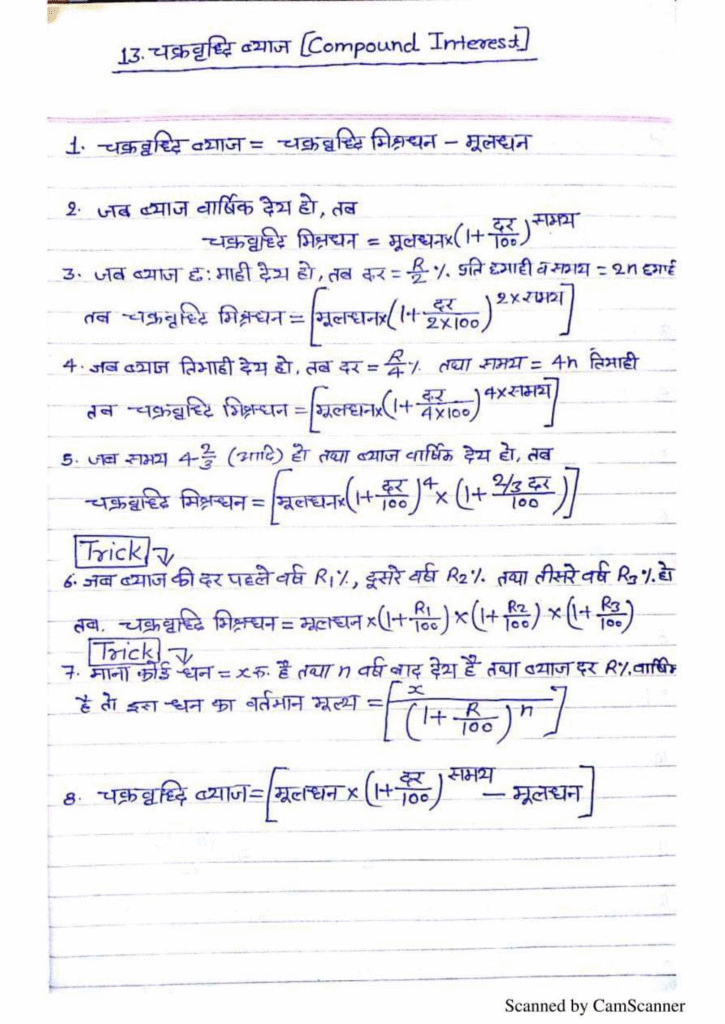 13. चक्रवृध्दि ब्याज [Compound Interest]
1. चक्रवृध्दि ब्याज = चक्रवृध्दि मिश्रधन – मूलधन
2. जब ब्याज वार्षिक देय हो, तब
चक्रवृध्दि मिश्रधन = मूलधन×(1+दर/100)^समय
3. जब ब्याज छ:माही देय हो, तब दर = R/2 %. प्रति छमाही व समय = 2n छमाई
तब चक्रवृध्दि मिश्रधन = [मूलधन×(1+दर/2×100)^2×समय]
4. जब ब्याज तिमाही देय हो, तब दर = R/4 %. तथा समय = 4n तिमाही
तब चक्रवृध्दि मिश्रधन = [मूलधन×(1+दर/4×100)^4×समय]
5. जब समय 4 2/3 (आदि) हो तथा ब्याज वार्षिक देय हो, तब
चक्रवृध्दि मिश्रधन = [मूलधन×(1+दर/100)^4 × (1+2/3 दर/100)]
Trick
6. जब ब्याज की दर पहले वर्ष R1%, दूसरे वर्ष R2%. तथा तीसरे वर्ष R3%.हो
तब. चक्रवृध्दि मिश्रधन = मूलधन ×(1+R1/100)×(1+R2/100)×(1+R3/100)
Trick
7. माना कोई धन = x रु. है तथा n वर्ष बाद देय है तथा ब्याज दर R%.वार्षिक
है तो इस धन का वर्तमान मूल्य = [x/(1+R/100)^n]
8. चक्रवृध्दि ब्याज = [मूलधन × (1+दर/100)^समय – मूलधन]
Scanned by CamScanner